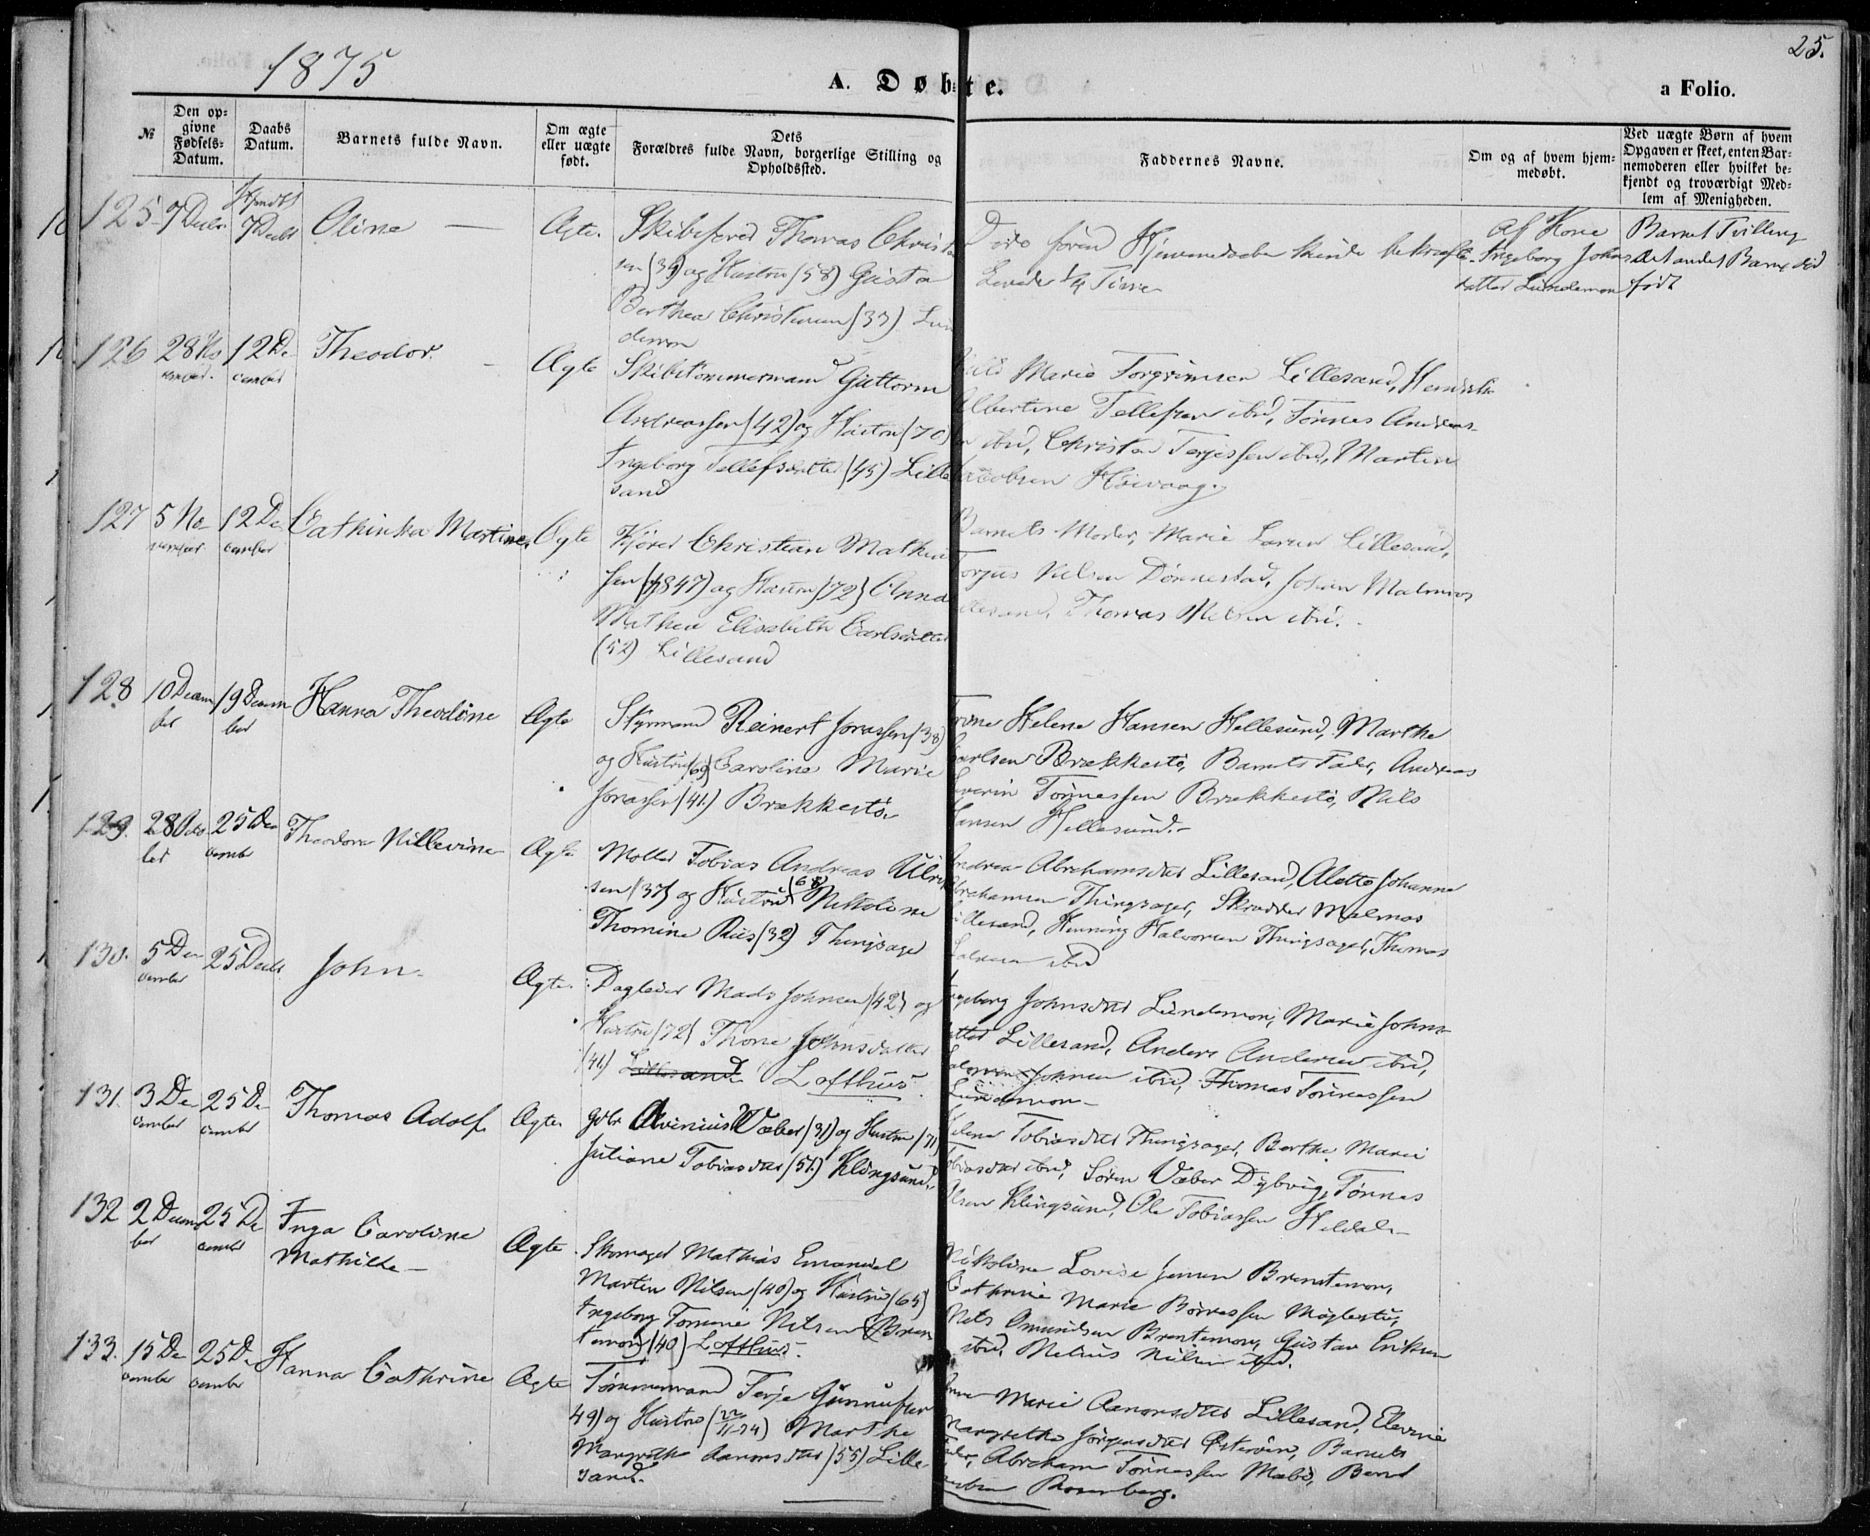 1875
A. Døbte.
25.
a Folio.
№
Den op-
givne
Fødsels-
Datum.
Daabs
Datum.
Barnets fulde Navn.
Om ægte
eller uægte
født.
Dets
Forældres fulde Navn, borgerlige Stilling og
Opholdssted.
Faddernes Navne.
Om og af hvem hjem-
medøbt.
Ved uægte Børn af hvem
Opgaven er skeet, enten Bar-
nemoderen eller hvilket be-
kjendt og troværdigt Med-
lem af Menigheden.
125 7 Decbr 7 Decbr Oline Ægte.
Skibsfører Thomas Christ
sen (39) og Hustru (58) Gusta
Berthea Christensen (33) Lun
demon
Døde føren Hjemmedaaben kunde bekræftes
Levede 1/4 Time
Af Kone
Ingeborg Johns
datter Lundemon
Barnet Tvilling
det andet Barn død
født
126 28 No 12 De Theodor. Ægte
vember cember
Skibstømmermand Guttorm
Andreassen (42) og Hustru (70)
Ingeborg Tellefsdatter (45) Lille
sand
Marie Torgrimsen Lillesand,
Albertine Tellefsen ibid, Tønnes Andreas-
ibid, Christen Terjessen ibid, Martin
Jacobsen Høivaag.
127 5 No- 12 De Cathinka Martine, Ægte
vember cember
Kjører Christian Mathia
sen (1847) og Hustru (72) Anna
Mathea Elisabeth Carlsdatter
(52) Lillesand
Barnets Moder, Marie Larsen Lillesand,
Torjus Nielsen Dønnestad, Johan Malmros
Lillesand, Thomas Nielsen ibid.
128 10 Decem 19 Decem Hanna Theodine Ægte
ber ber
Styrmand Reinert Jorassen (38)
og Hustru (69) Caroline Marie
Jorassen (41) Brækkestø.
Helene Hansen Hellesund, Marthe
Carlsen Brækkestø, Barnets Fader, Andreas
Severin Tønnessen Brækkestø, Nils
Hansen Hellesund.
129. 28 Octo 25 De Theodora Nillevine Ægte
ber cember
Møller Tobias Andreas Ulrik
sen (37) og Hustru (68) Nikoline
Thomine Riis (32) Thingsager
Andrea Abrahamsdtr Lillesand, Alette Johanne
Abrahamsen Thingsager, Skrædder Malmros
Lillesand, Henning Halvorsen Thingsager, Thomas
ibid
130. 5 De 25 Decbr John Ægte.
cember
Dagleier Mads Johnsen (42) og
Hustru (72) Thone Johnsdatter
(41) Lillesand Lofthus.
Ingeborg Johnsdtr Lundemon, Marie Johns-
datter Lillesand, Anders Andersen ibid,
Johnsen ibid, Thomas Tønnessen
Lundemon
131. 3 De 25 De Thomas Adolf. Ægte
cember cember
Gdbr Avinius Væber (31) og Hustru (71)
Juliane Tobiasdtr (51) Klingsund.
Helene Tobiasdtr Thingsager, Berthe Marie
Tobiasdtr ibid, Søren Væber Dybvig, Tønnes
Olsen Klingsund, Ole Tobiassen Heldal
132 2 Decem 25 De Inga Caroline Ægte
ber cember Mathilde
Skomager Mathias Emanuel
Martin Nilsen (40) og Hustru (65)
Ingeborg Tomine Nilsen Bren
temon (40) Lofthus.
Nikoline Lovise Jensen Brentemon,
Cathrine Marie Børressen Møglestu,
Nils Omundsen Brentemon, Gustav Eriksen
ibid, Nelius Nilsen ibid.
133. 15 De 25 De Hanna Cathrine Ægte
cember cember
Tømmermand Terje Gunnufsen
49) og Hustru (22/11-74) Marthe
Margrethe Aanonsdtr (55) Lille
sand.
Marie Aanonsdtr Lillesand, Elevine
Margrethe Jørgensdtr Østerøen, Barnets
Fader, Abraham Tønnessen Møbø, Bernt
Rosenberg.